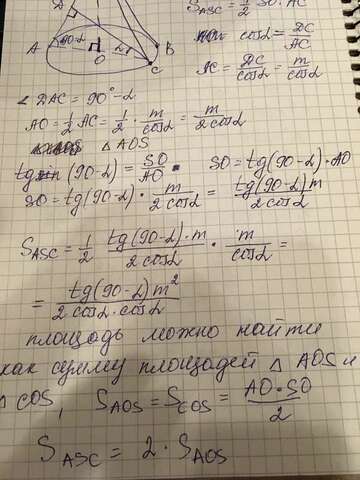 D
A 90-α α B
O C
S_ASC = 1/2 SO · AC
cos α = DC/AC
AC = DC/cos α = m/cos α
∠ DAC = 90° - α
AO = 1/2 AC = 1/2 · m/cos α = m/2 cos α
Δ AOS
tg (90-α) = SO/AO SO = tg(90-α) · AO
SO = tg(90-α) · m/2 cos α = tg(90-α) m/2 cos α
S_ASC = 1/2 tg(90-α) · m/2 cos α · m/cos α =
= tg(90-α) m²/2 cos α · cos α
площадь можно найти
как сумму площадей Δ AOS и
Δ COS, S_AOS = S_COS = AO · SO/2
S_ASC = 2 · S_AOS